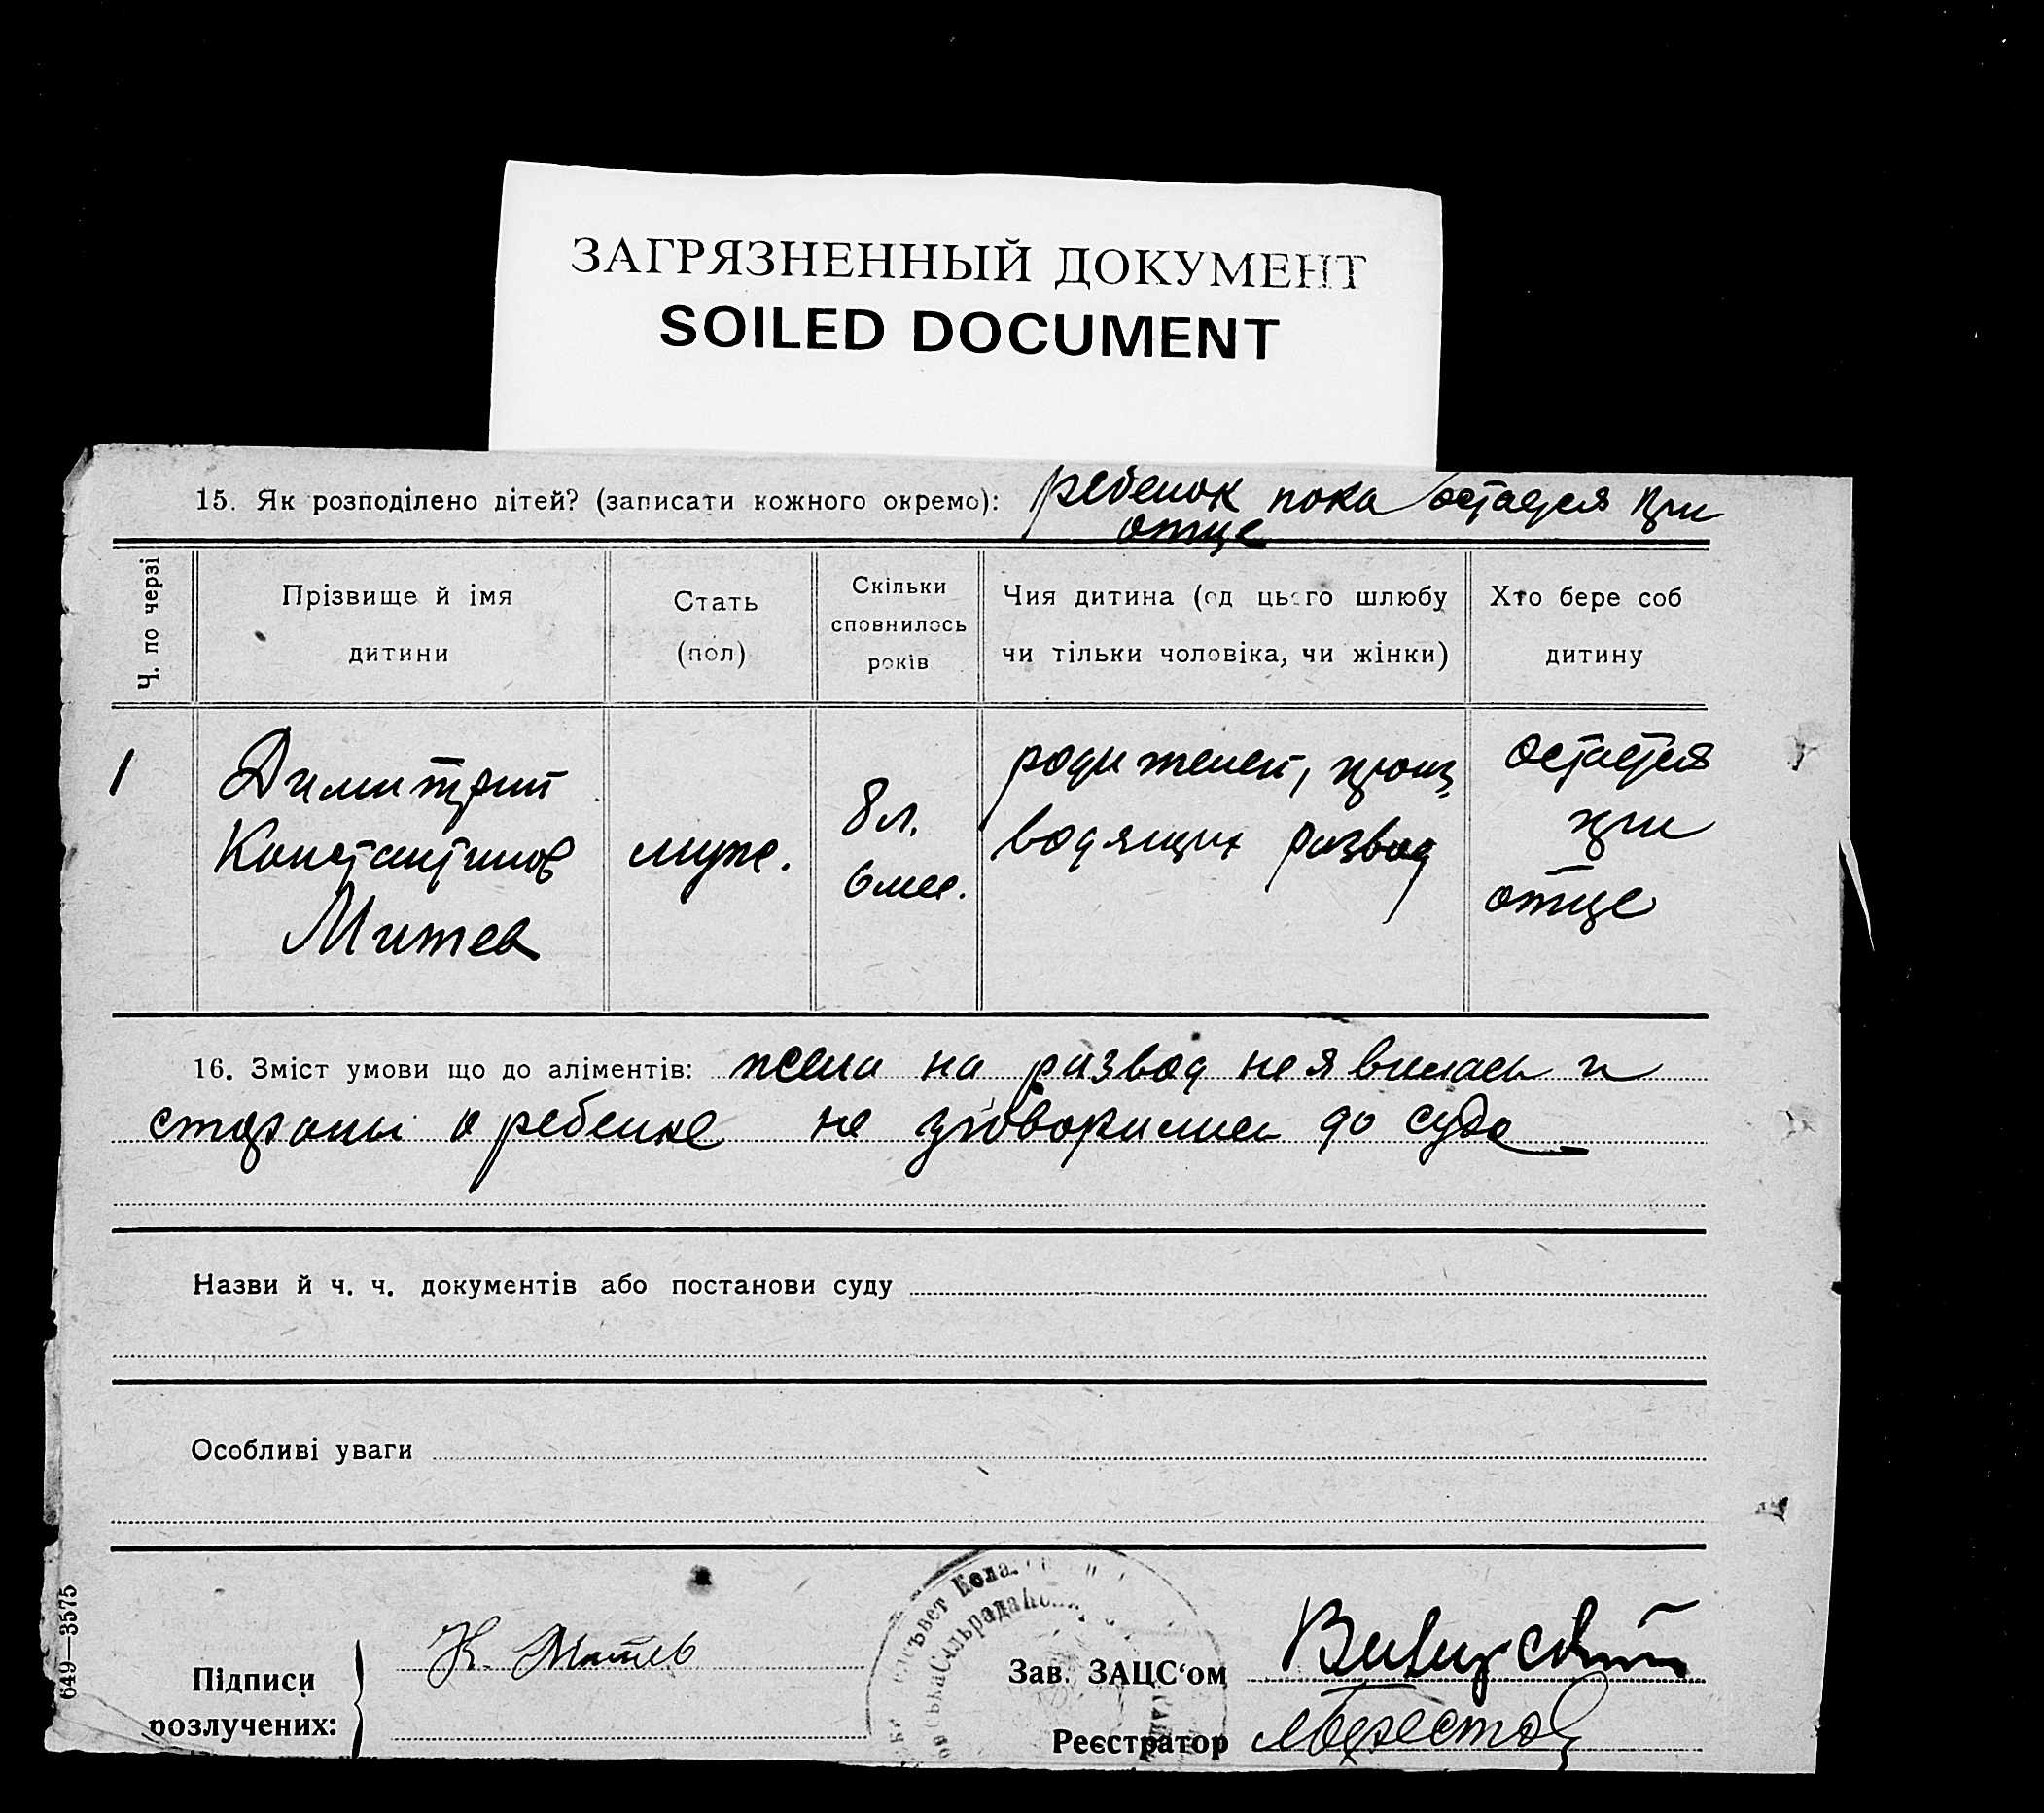 ЗАГРЯЗНЕННЫЙ ДОКУМЕНТ
SOILED DOCUMENT
15. Як розподілено дітей? (записати кожного окремо): ребенок пока остается при
отце
Ч. по черзі
Прізвище й імя
дитини
Стать
(пол)
Скільки
сповнилось
років
Чия дитина (од цього шлюбу
чи тільки чоловіка, чи жінки)
Хто бере соб
дитину
1
Димитрий
Константинов
Митев
муж.
8 л.
6 мес.
родителей, произ
водящих развод
остается
при
отце
16. Зміст умови що до аліментів: жена на развод не явилась и
стороны о ребенке не зговорились до суда
Назви й ч. ч. документів або постанови суду
Особливі уваги
649—3575
Підписи
розлучених:
К. Митев
Зав. ЗАЦС‘ом
Реєстратор